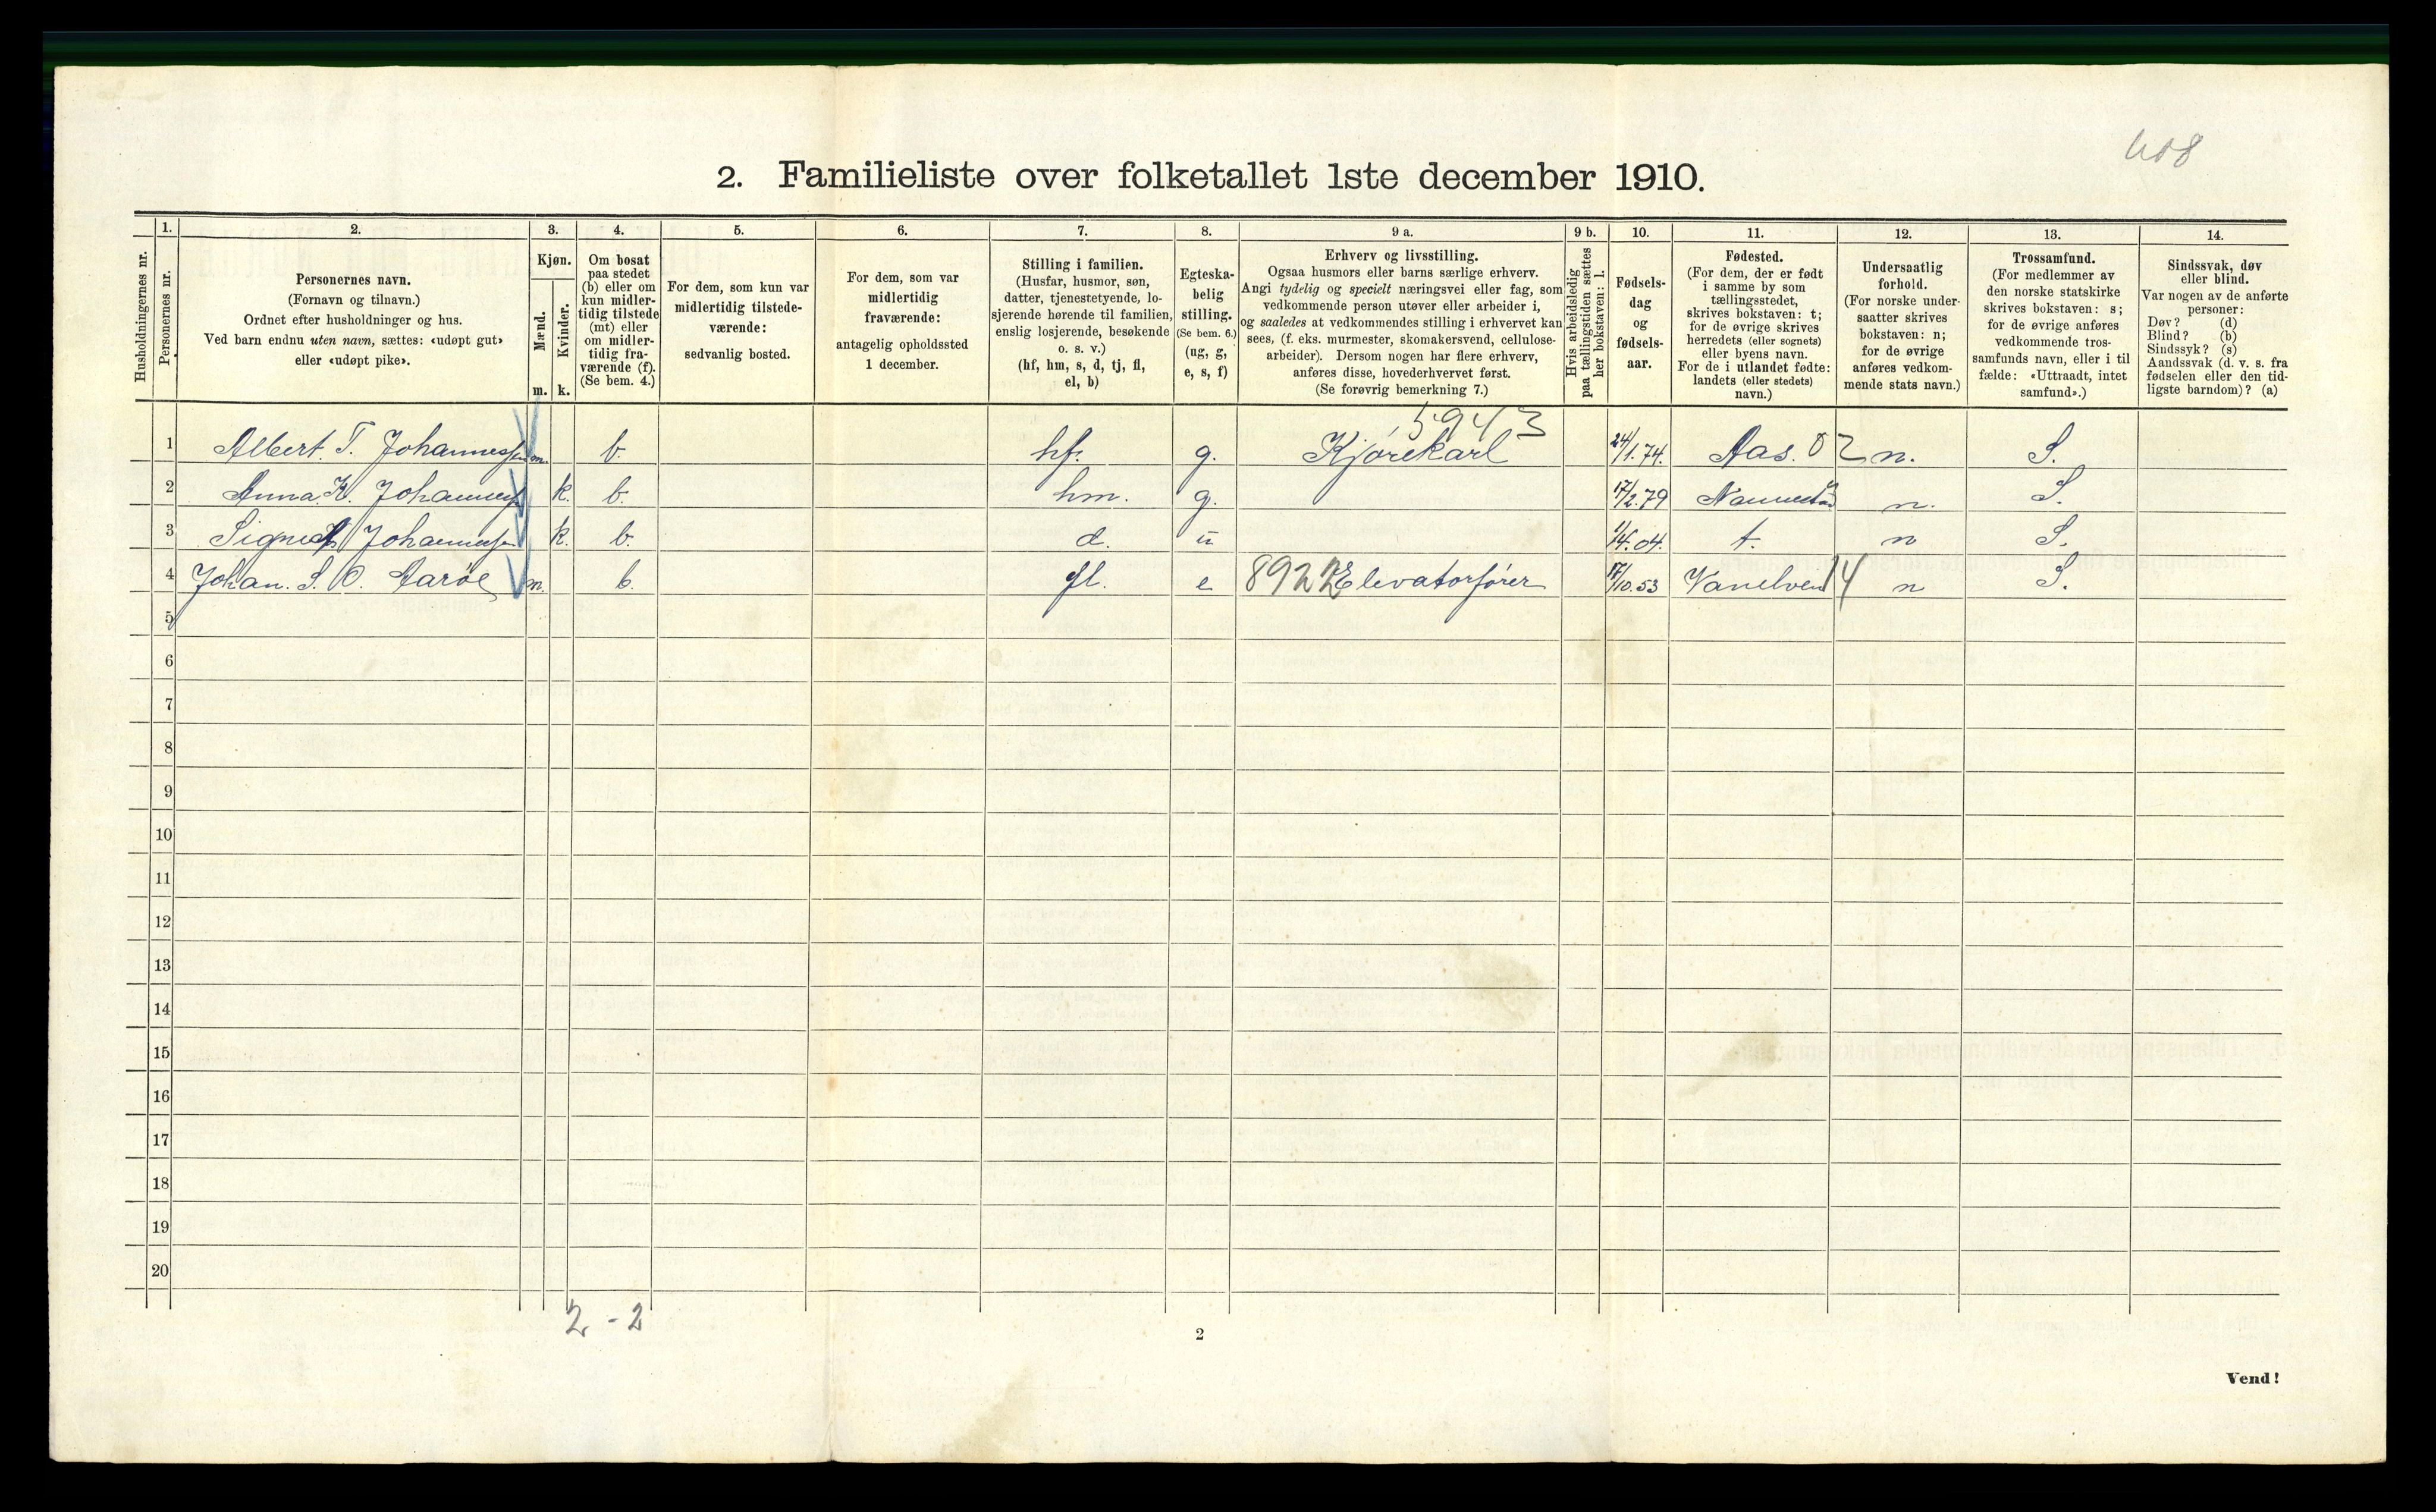 608
2. Familieliste over folketallet 1ste december 1910.
Husholdningernes nr.
1. Personernes nr.
2. Personernes navn.
(Fornavn og tilnavn.)
Ordnet efter husholdninger og hus.
Ved barn endnu uten navn, sættes: «udøpt gut»
eller «udøpt pike».
3. Kjøn.
Mænd. m.
Kvinder. k.
4. Om bosat
paa stedet
(b) eller om
kun midler-
tidig tilstede
(mt) eller
om midler-
tidig fra-
værende (f).
(Se bem. 4.)
5. For dem, som kun var
midlertidig tilstede-
værende:
sedvanlig bosted.
6. For dem, som var
midlertidig
fraværende:
antagelig opholdssted
1 december.
7. Stilling i familien.
(Husfar, husmor, søn,
datter, tjenestetyende, lo-
sjerende hørende til familien,
enslig losjerende, besøkende
o. s. v.)
(hf, hm, s, d, tj, fl,
el, b)
8. Egteska-
belig
stilling.
(Se bem. 6.)
(ug, g,
e, s, f)
9 a. Erhverv og livsstilling.
Ogsaa husmors eller barns særlige erhverv.
Angi tydelig og specielt næringsvei eller fag, som
vedkommende person utøver eller arbeider i,
og saaledes at vedkommendes stilling i erhvervet kan
sees, (f. eks. murmester, skomakersvend, cellulose-
arbeider). Dersom nogen har flere erhverv,
anføres disse, hovederhvervet først.
(Se forøvrig bemerkning 7.)
9 b. Hvis arbeidsledig
paa tællingstiden sættes
her bokstaven: l.
10. Fødsels-
dag
og
fødsels-
aar.
11. Fødested.
(For dem, der er født
i samme by som
tællingsstedet,
skrives bokstaven: t;
for de øvrige skrives
herredets (eller sognets)
eller byens navn.
For de i utlandet fødte:
landets (eller stedets)
navn.)
12. Undersaatlig
forhold.
(For norske under-
saatter skrives
bokstaven: n;
for de øvrige
anføres vedkom-
mende stats navn.)
13. Trossamfund.
(For medlemmer av
den norske statskirke
skrives bokstaven: s;
for de øvrige anføres
vedkommende tros-
samfunds navn, eller i til
fælde: «Uttraadt, intet
samfund».)
14. Sindssvak, døv
eller blind.
Var nogen av de anførte
personer:
Døv? (d)
Blind? (b)
Sindssyk? (s)
Aandssvak (d. v. s. fra
fødselen eller den tid-
ligste barndom)? (a)
5943
1 Albert. T. Johannessen m. b. hf. g. Kjørekarl 24/1.74. Aas. 02 n. S.
2 Anna. K. Johannessen k. b. hm. g. 17/2.79 n. S.
3 Johannessen k. b. d. u 1/4.04. t. n S.
4 Johan. S. O. Aarøe m. b. fl. e 8922 Elevatorfører 17/10.53 Vanelven 14 n S.
5
6
7
8
9
10
11
12
13
14
15
16
17
18
19
20
2 - 2
2
Vend!